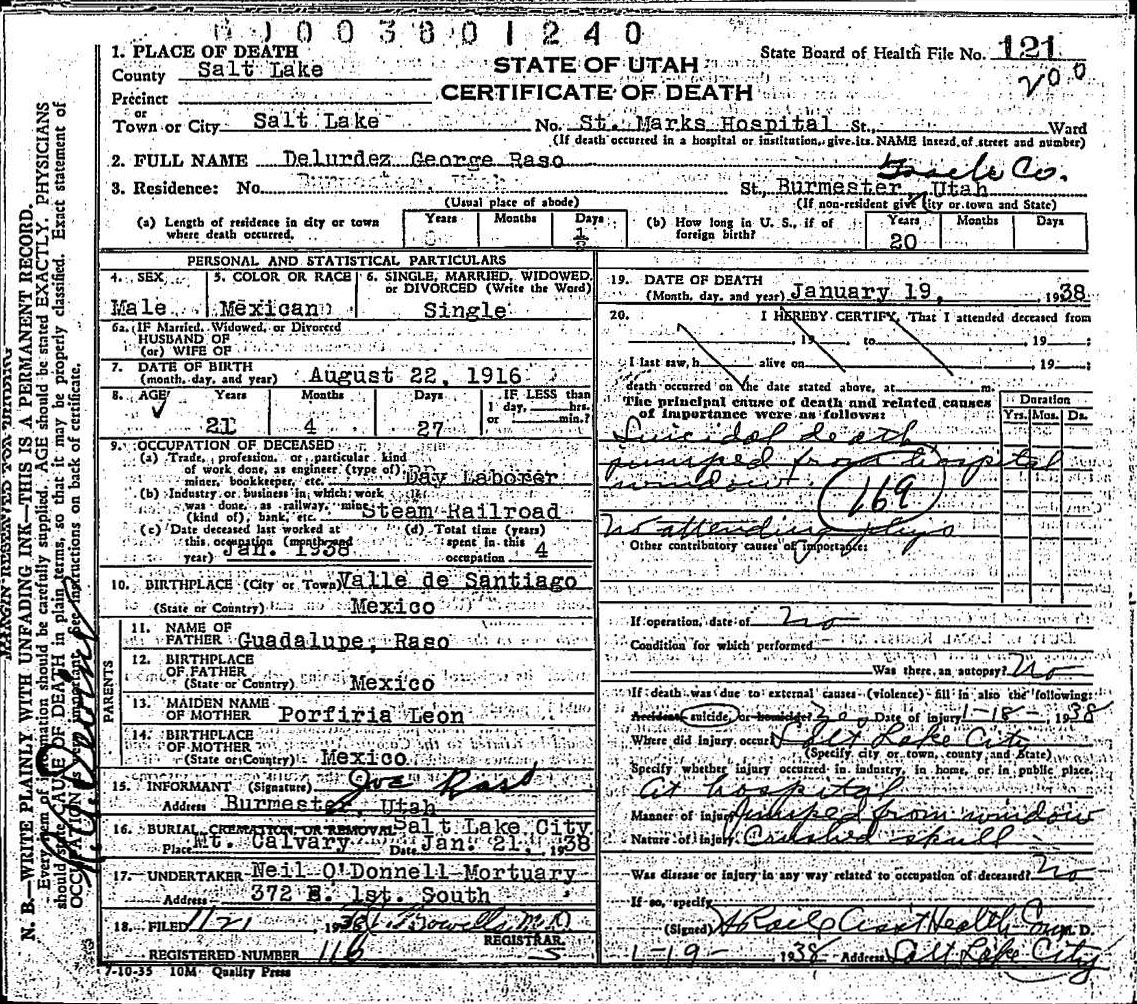 0 1 0 0 3 8 0 1 2 4 0
State Board of Health File No. 121
200
STATE OF UTAH
CERTIFICATE OF DEATH
1. PLACE OF DEATH
County Salt Lake
Precinct
or
Town or City Salt Lake No. St. Marks Hospital St., Ward
(If death occurred in a hospital or institution, give its NAME instead of street and number)
2. FULL NAME Delurdez George Raso
Tooele Co.
3. Residence: No. St., Burmester, Utah
(Usual place of abode) (If non-resident give city or town and State)
(a) Length of residence in city or town where death occurred. Years Months Days 1/2
(b) How long in U. S., if of foreign birth? Years 20 Months Days
PERSONAL AND STATISTICAL PARTICULARS
4. SEX Male
5. COLOR OR RACE Mexican
6. SINGLE, MARRIED, WIDOWED, or DIVORCED (Write the Word) Single
6a. IF Married, Widowed, or Divorced
HUSBAND OF
(or) WIFE OF
7. DATE OF BIRTH
(month, day, and year) August 22, 1916
8. AGE Years 21 Months 4 Days 27
IF LESS than
1 day, hrs.
or min.?
9. OCCUPATION OF DECEASED
(a) Trade, profession, or particular kind
of work done, as engineer (type of),
miner, bookkeeper, etc. Day Laborer
(b) Industry or business in which work
was done, as railway, mine
(kind of), bank, etc. Steam Railroad
(c) Date deceased last worked at
this occupation (month and
year) Jan. 1938
(d) Total time (years)
spent in this
occupation 4
10. BIRTHPLACE (City or Town) Valle de Santiago
(State or Country) Mexico
PARENTS
11. NAME OF
FATHER Guadalupe, Raso
12. BIRTHPLACE
OF FATHER
(State or Country) Mexico
13. MAIDEN NAME
OF MOTHER Porfiria Leon
14. BIRTHPLACE
OF MOTHER
(State or Country) Mexico
15. INFORMANT (Signature) Joe Raso
Address Burmester, Utah
16. BURIAL, CREMATION, OR REMOVAL Salt Lake City
Place Mt. Calvary Date Jan. 21, 1938
17. UNDERTAKER Neil O'Donnell Mortuary
Address 372 E. 1st. South
18. FILED 1/21 1938
REGISTRAR.
REGISTERED NUMBER 116
7-10-35 10M Quality Press
19. DATE OF DEATH
(Month, day, and year) January 19, 1938
20. I HEREBY CERTIFY, That I attended deceased from
, 19 to , 19
I last saw h alive on 19
death occurred on the date stated above, at m.
The principal cause of death and related causes
of importance were as follows:
Duration
Yrs. Mos. Ds.
Suicidal death
jumped from hospital
window.
169
No attending phys
Other contributory causes of importance:
If operation, date of no
Condition for which performed
Was there an autopsy? No
If death was due to external causes (violence) fill in also the following:
Accident, suicide, or homicide? Yes Date of injury 1-18- 1938
Where did injury occur Salt Lake City
(Specify city or town, county and State)
Specify whether injury occurred in industry, in home, or in public place.
At hospital
Manner of injury Jumped from window
Nature of injury Crushed skull
Was disease or injury in any way related to occupation of deceased? No
If so, specify
(Signed) Asst Health Com M. D.
1-19- 1938 Address Salt Lake City
MARGIN RESERVED FOR BINDING
N. B.—WRITE PLAINLY WITH UNFADING INK—THIS IS A PERMANENT RECORD.
Every item of information should be carefully supplied. AGE should be stated EXACTLY. PHYSICIANS
should state CAUSE OF DEATH in plain terms, so that it may be properly classified. Exact statement of
OCCUPATION is very important. See instructions on back of certificate.